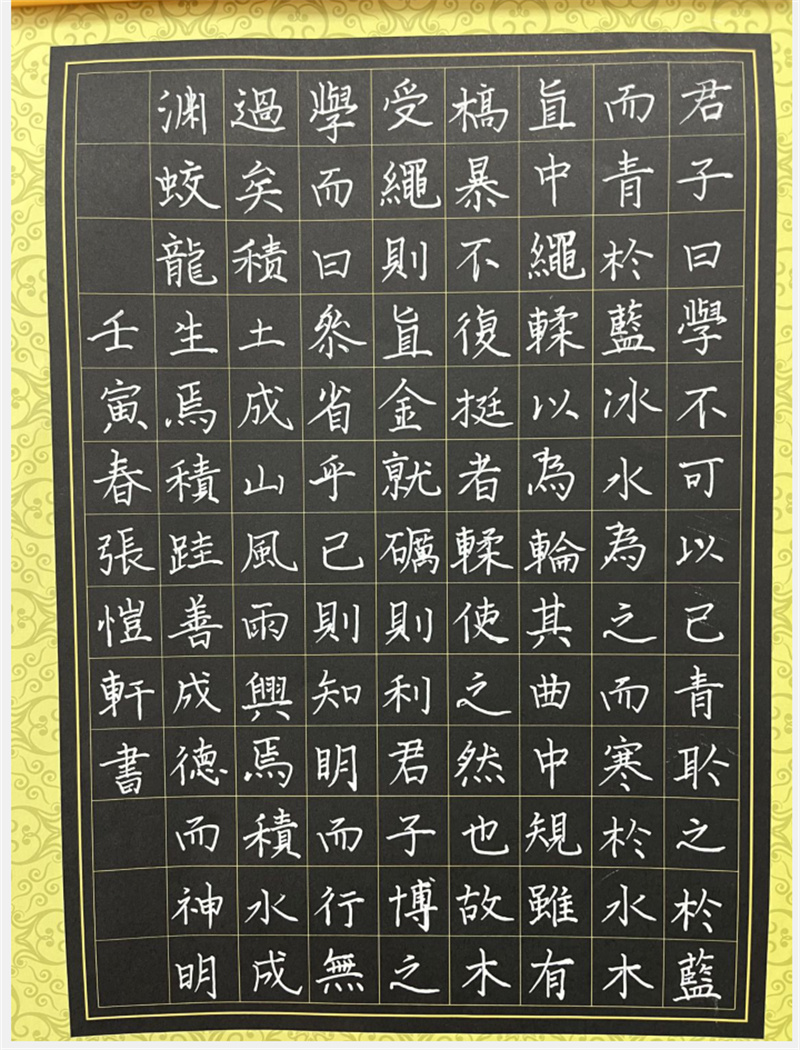 君子曰學不可以已青取之於藍
而青於藍冰水為之而寒於水木
直中繩輮以為輪其曲中規雖有
槁暴不復挺者輮使之然也故木
受繩則直金就礪則利君子博之
學而曰參省乎己則知明而行無
過矣積土成山風雨興焉積水成
渊蛟龍生焉積跬善成德而神明
壬寅春張愷軒書